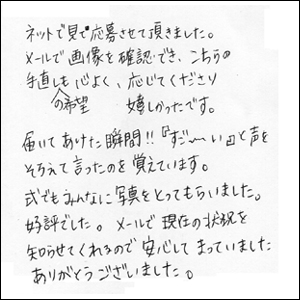 ネットで見て応募させて頂きました。
メールで画像を確認でき、こちらの
手直しも心よく、応じてくださり
の希望 嬉しかったです。
届いてあけた瞬間!!『すご〜〜い』と声を
そろえて言ったのを覚えています。
式でもみんなに写真をとってもらいました。
好評でした。メールで現在の状況を
知らせてくれるので安心してまっていました
ありがとうございました。